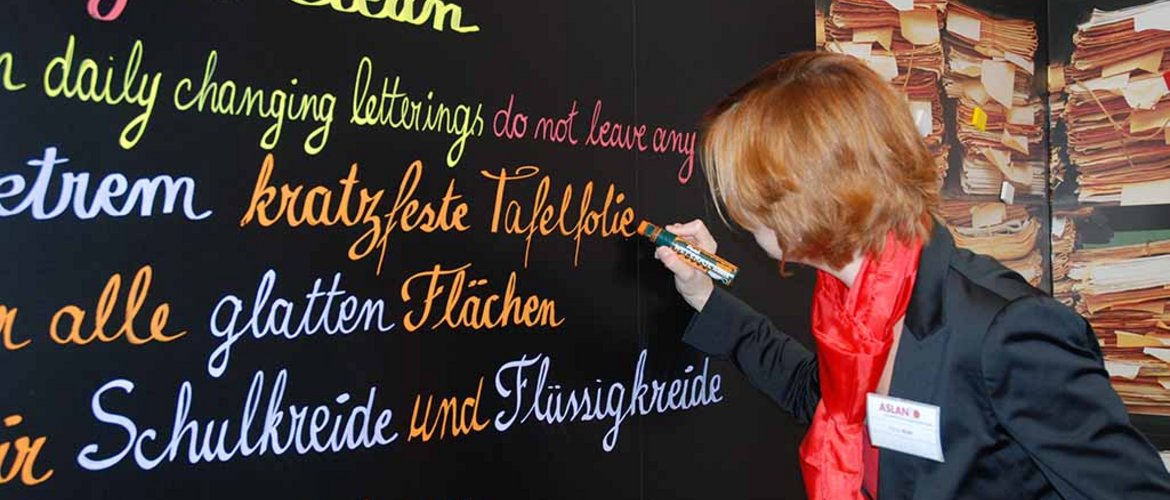 daily changing letterings do not leave any
kratzfeste Tafelfolie
alle glatten Flächen
Schulkreide und Flüssigkreide
ASLAN